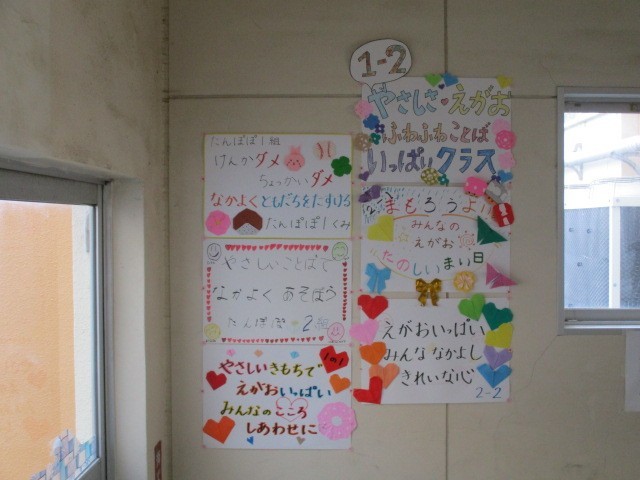 たんぽぽ1組
けんかダメ
ちょっかいダメ
なかよくともだちをたすける
たんぽぽ1くみ
やさしいことばで
なかよくあそぼう
たんぽぽ2組
1の1
やさしいきもちで
えがおいっぱい
みんなのこころ
しあわせに
1-2
やさしさ えがお
ふわふわことば
いっぱいクラス
まもろうよ
みんなの
えがお
たのしいまい日
えがおいっぱい
みんななかよし
きれいな心
2-2